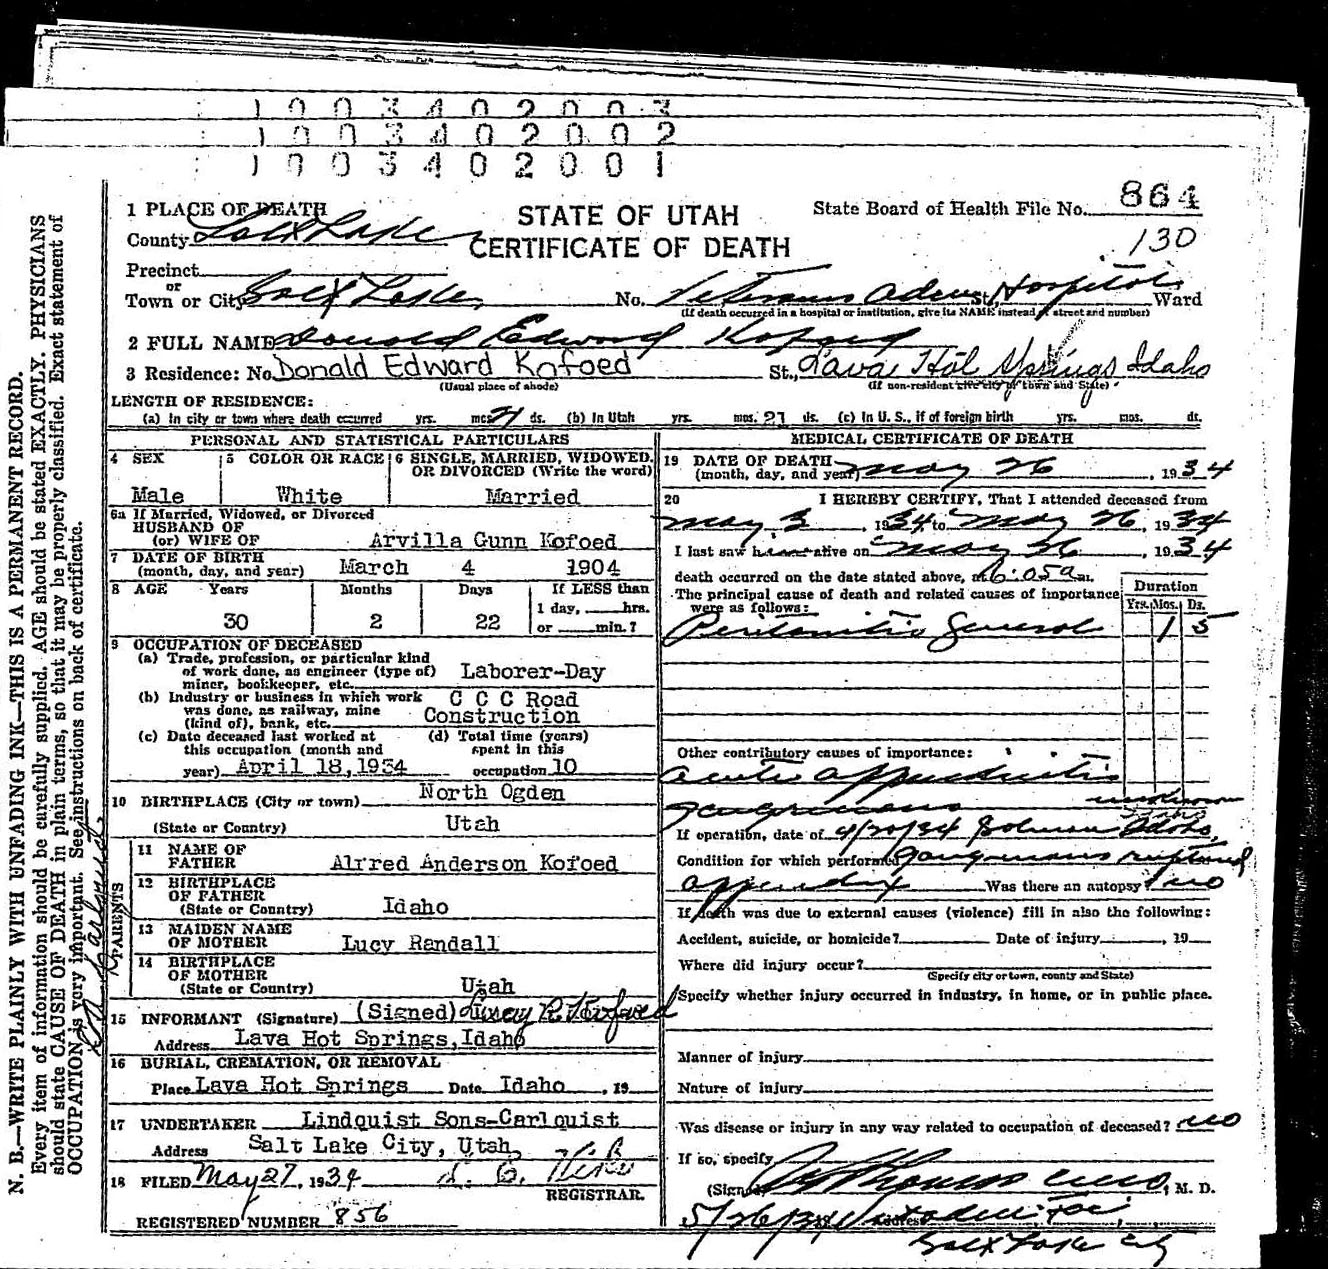 1003402003
1003402002
1003402001
1 PLACE OF DEATH
STATE OF UTAH
CERTIFICATE OF DEATH
State Board of Health File No. 864
130
County Salt Lake
Precinct
or
Town or City Salt Lake, No. Veterans Adm. St., Hospital Ward
(If death occurred in a hospital or institution, give its NAME instead of street and number)
2 FULL NAME Donald Edward Kofoed
3 Residence: No. Donald Edward Kofoed St., Lava Hot Springs Idaho
(Usual place of abode) (If non-resident give city or town and State)
LENGTH OF RESIDENCE:
(a) In city or town where death occurred yrs. mos. 21 ds. (b) In Utah yrs. mos. 21 ds. (c) In U. S., if of foreign birth yrs. mos. ds.
PERSONAL AND STATISTICAL PARTICULARS
4 SEX
Male
5 COLOR OR RACE
White
6 SINGLE, MARRIED, WIDOWED, OR DIVORCED (Write the word)
Married
6a If Married, Widowed, or Divorced
HUSBAND OF
(or) WIFE OF Arvilla Gunn Kofoed
7 DATE OF BIRTH
(month, day, and year) March 4 1904
8 AGE Years Months Days If LESS than
1 day, ___hrs.
30 2 22 or ___min.?
9 OCCUPATION OF DECEASED
(a) Trade, profession, or particular kind
of work done, as engineer (type of)
miner, bookkeeper, etc. Laborer-Day
(b) Industry or business in which work
was done, as railway, mine
(kind of), bank, etc. C C C Road
Construction
(c) Date deceased last worked at
this occupation (month and
year) April 18,1934
(d) Total time (years)
spent in this
occupation 10
10 BIRTHPLACE (City or town) North Ogden
(State or Country) Utah
PARENTS
11 NAME OF
FATHER Alfred Anderson Kofoed
12 BIRTHPLACE
OF FATHER
(State or Country) Idaho
13 MAIDEN NAME
OF MOTHER Lucy Randall
14 BIRTHPLACE
OF MOTHER
(State or Country) Utah
15 INFORMANT (Signature) (Signed) Lucy R. Kofoed
Address Lava Hot Springs, Idaho
16 BURIAL, CREMATION, OR REMOVAL
Place Lava Hot Springs Date Idaho , 19
17 UNDERTAKER Lindquist Sons-Carlquist
Address Salt Lake City, Utah
18 FILED May 27, 1934
REGISTRAR.
REGISTERED NUMBER 856
MEDICAL CERTIFICATE OF DEATH
19 DATE OF DEATH
(month, day, and year) May 26, 1934
20 I HEREBY CERTIFY, That I attended deceased from
May 3, 1934 to May 26, 1934
I last saw him alive on May 26, 1934
death occurred on the date stated above, at 6:05a m.
The principal cause of death and related causes of importance
were as follows:
Duration
Yrs. Mos. Ds.
Peritonitis General 1 5
Other contributory causes of importance:
acute appendicitis
gangrenous unknown
If operation, date of 4/20/34 Idaho.
Condition for which performed gangrenous ruptured
appendix Was there an autopsy? no
If death was due to external causes (violence) fill in also the following:
Accident, suicide, or homicide? Date of injury , 19
Where did injury occur?
(Specify city or town, county and State)
Specify whether injury occurred in industry, in home, or in public place.
Manner of injury
Nature of injury
Was disease or injury in any way related to occupation of deceased? no
If so, specify
(Signed) , M. D.
5/26/34 Address
Salt Lake City
N. B.—WRITE PLAINLY WITH UNFADING INK—THIS IS A PERMANENT RECORD.
Every item of information should be carefully supplied. AGE should be stated EXACTLY. PHYSICIANS
should state CAUSE OF DEATH in plain terms, so that it may be properly classified. Exact statement of
OCCUPATION is very important. See instructions on back of certificate.